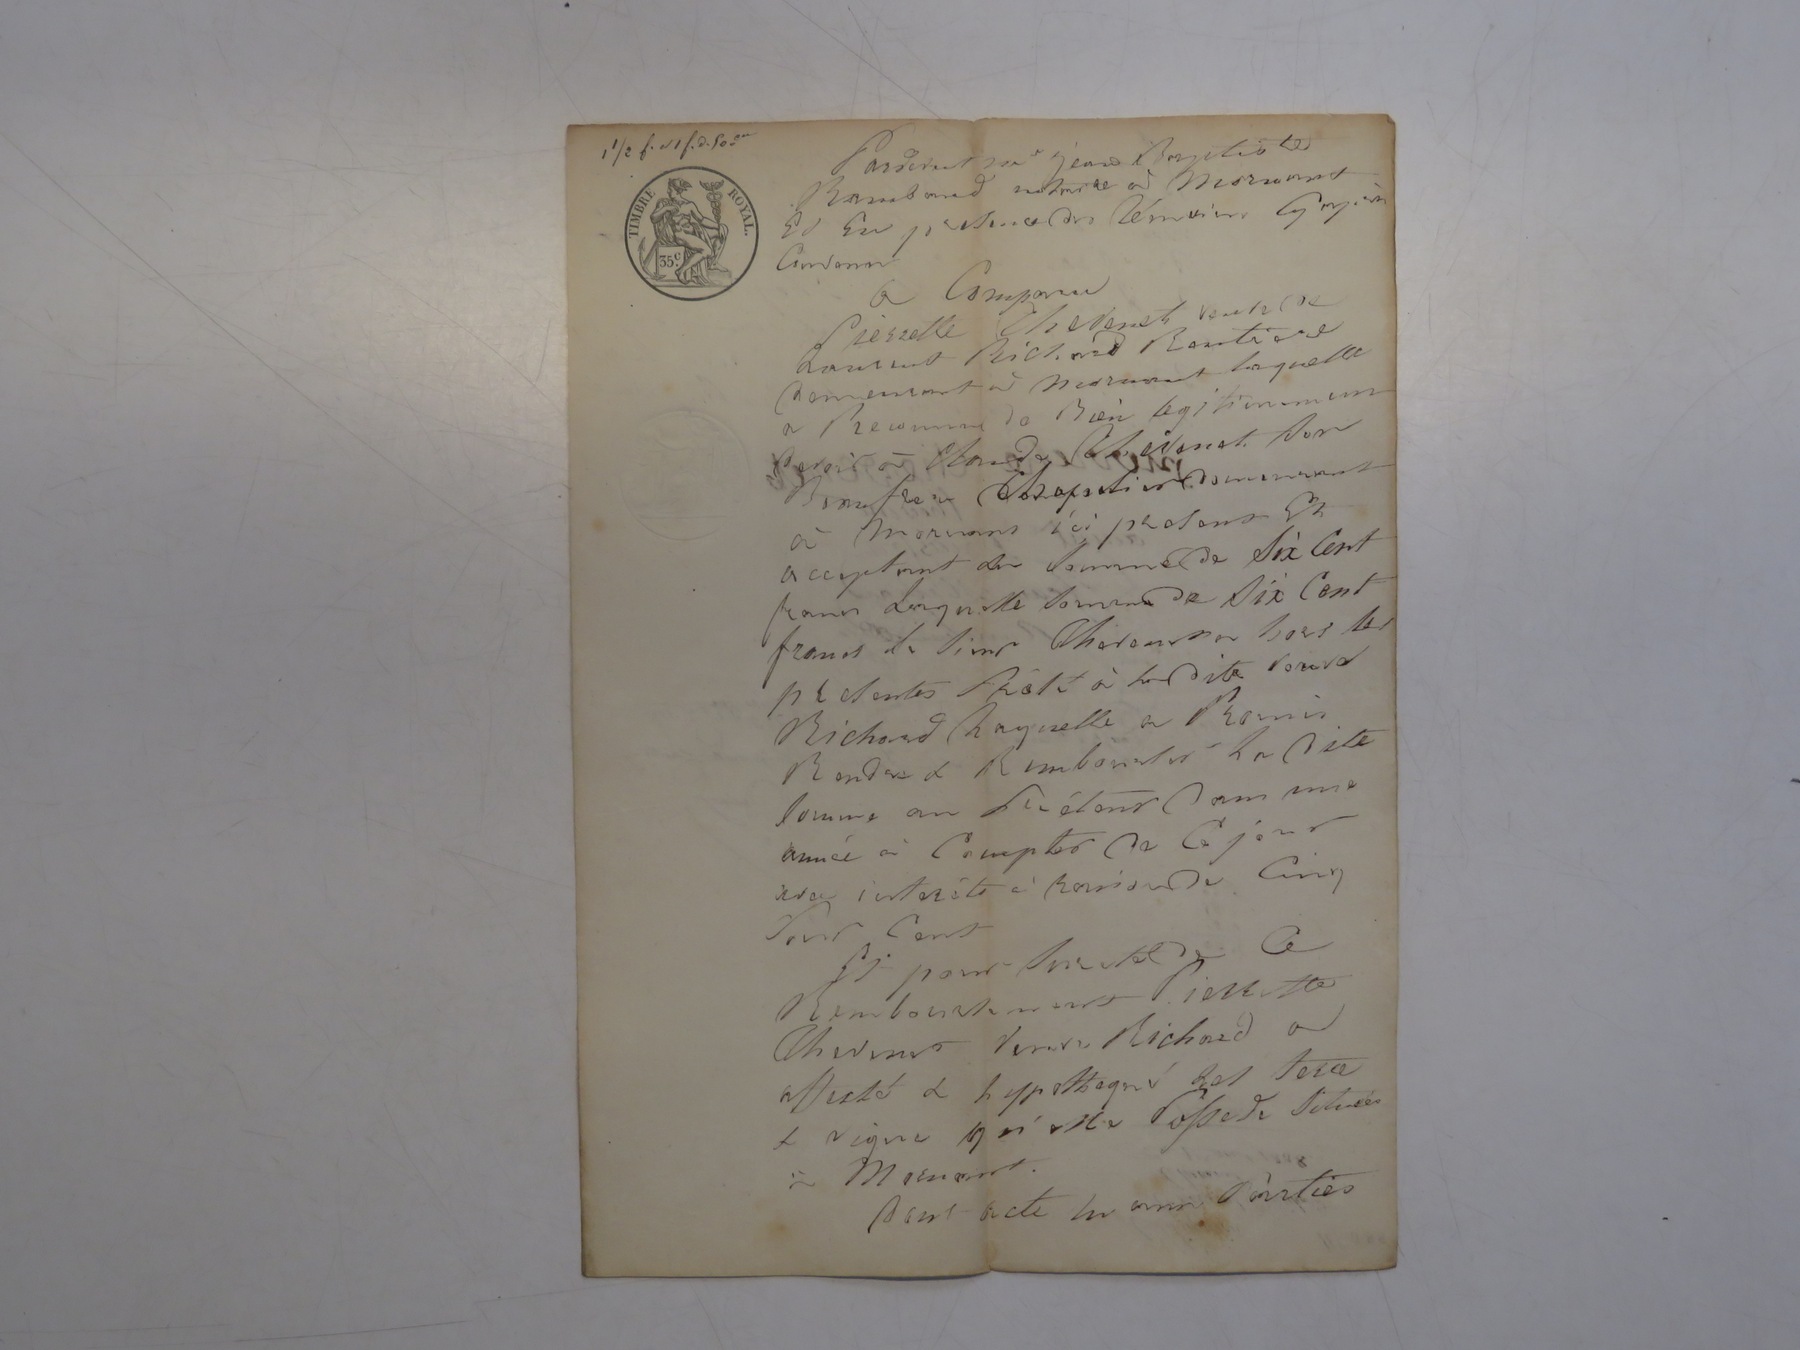 TIMBRE ROYAL.
35c
Pardevant me jean Baptiste
Rambaud notaire à Mornant
Et En presence des témoins
a Comparu
Pierrette Thevenet veuve de
Laurent Richard Rentière
demeurant à mornant laquelle
a Reconnu de Bien legitimement
devoir à Claude Thevenet Son
Beaufrere demeurant
à Mornant ici present Et
acceptant La Somme de Six Cent
francs Laquelle Somme de Six Cent
francs Le Sieur Thevenet a hors les
presentes Prêté à La dite veuve
Richard Laquelle a Promis
Rendre & Rembourser La dite
Somme au Prêteur Dans une
année à Compter de Ce jour
avec interêts à raison de Cinq
Pour Cent
Et pour Sureté de Ce
Remboursement Pierrette
Thevenet veuve Richard a
affecté & hyppothequé Les terre
& vigne qu'elle Possede Situées
à Mornant.
Dont acte Parties